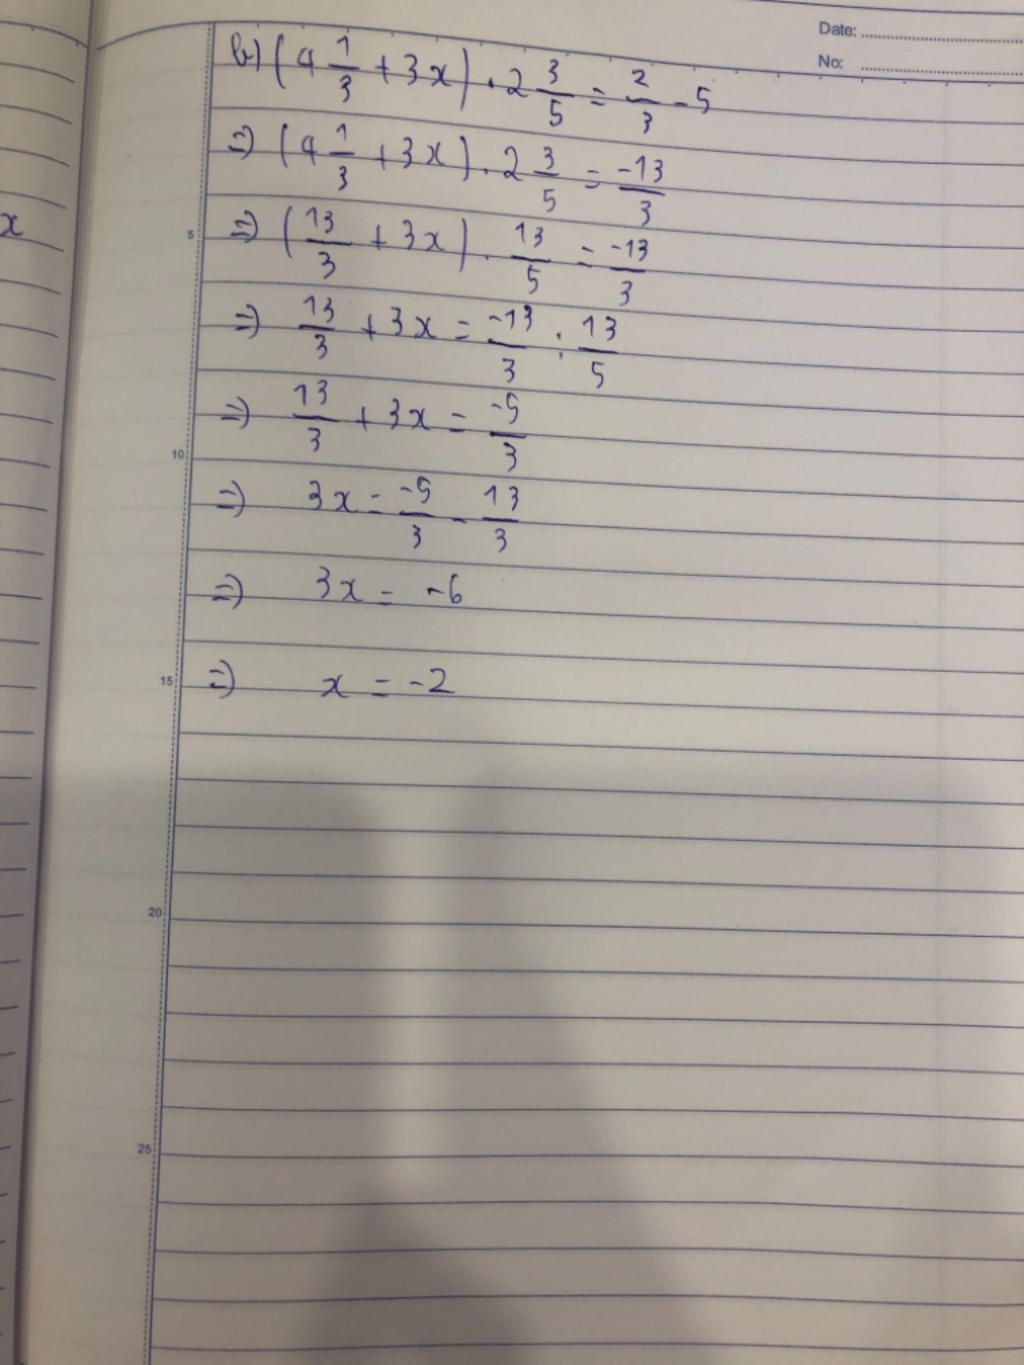 Date:
No:
b) (4 1/3 + 3x) . 2 3/5 = 2/3 - 5
=) (4 1/3 + 3x) . 2 3/5 = -13/3
x
5
=) (13/3 + 3x) . 13/5 = -13/3
=) 13/3 + 3x = -13/3 : 13/5
=) 13/3 + 3x = -5/3
10
=) 3x = -5/3 - 13/3
=) 3x = -6
15
=) x = -2
20
25